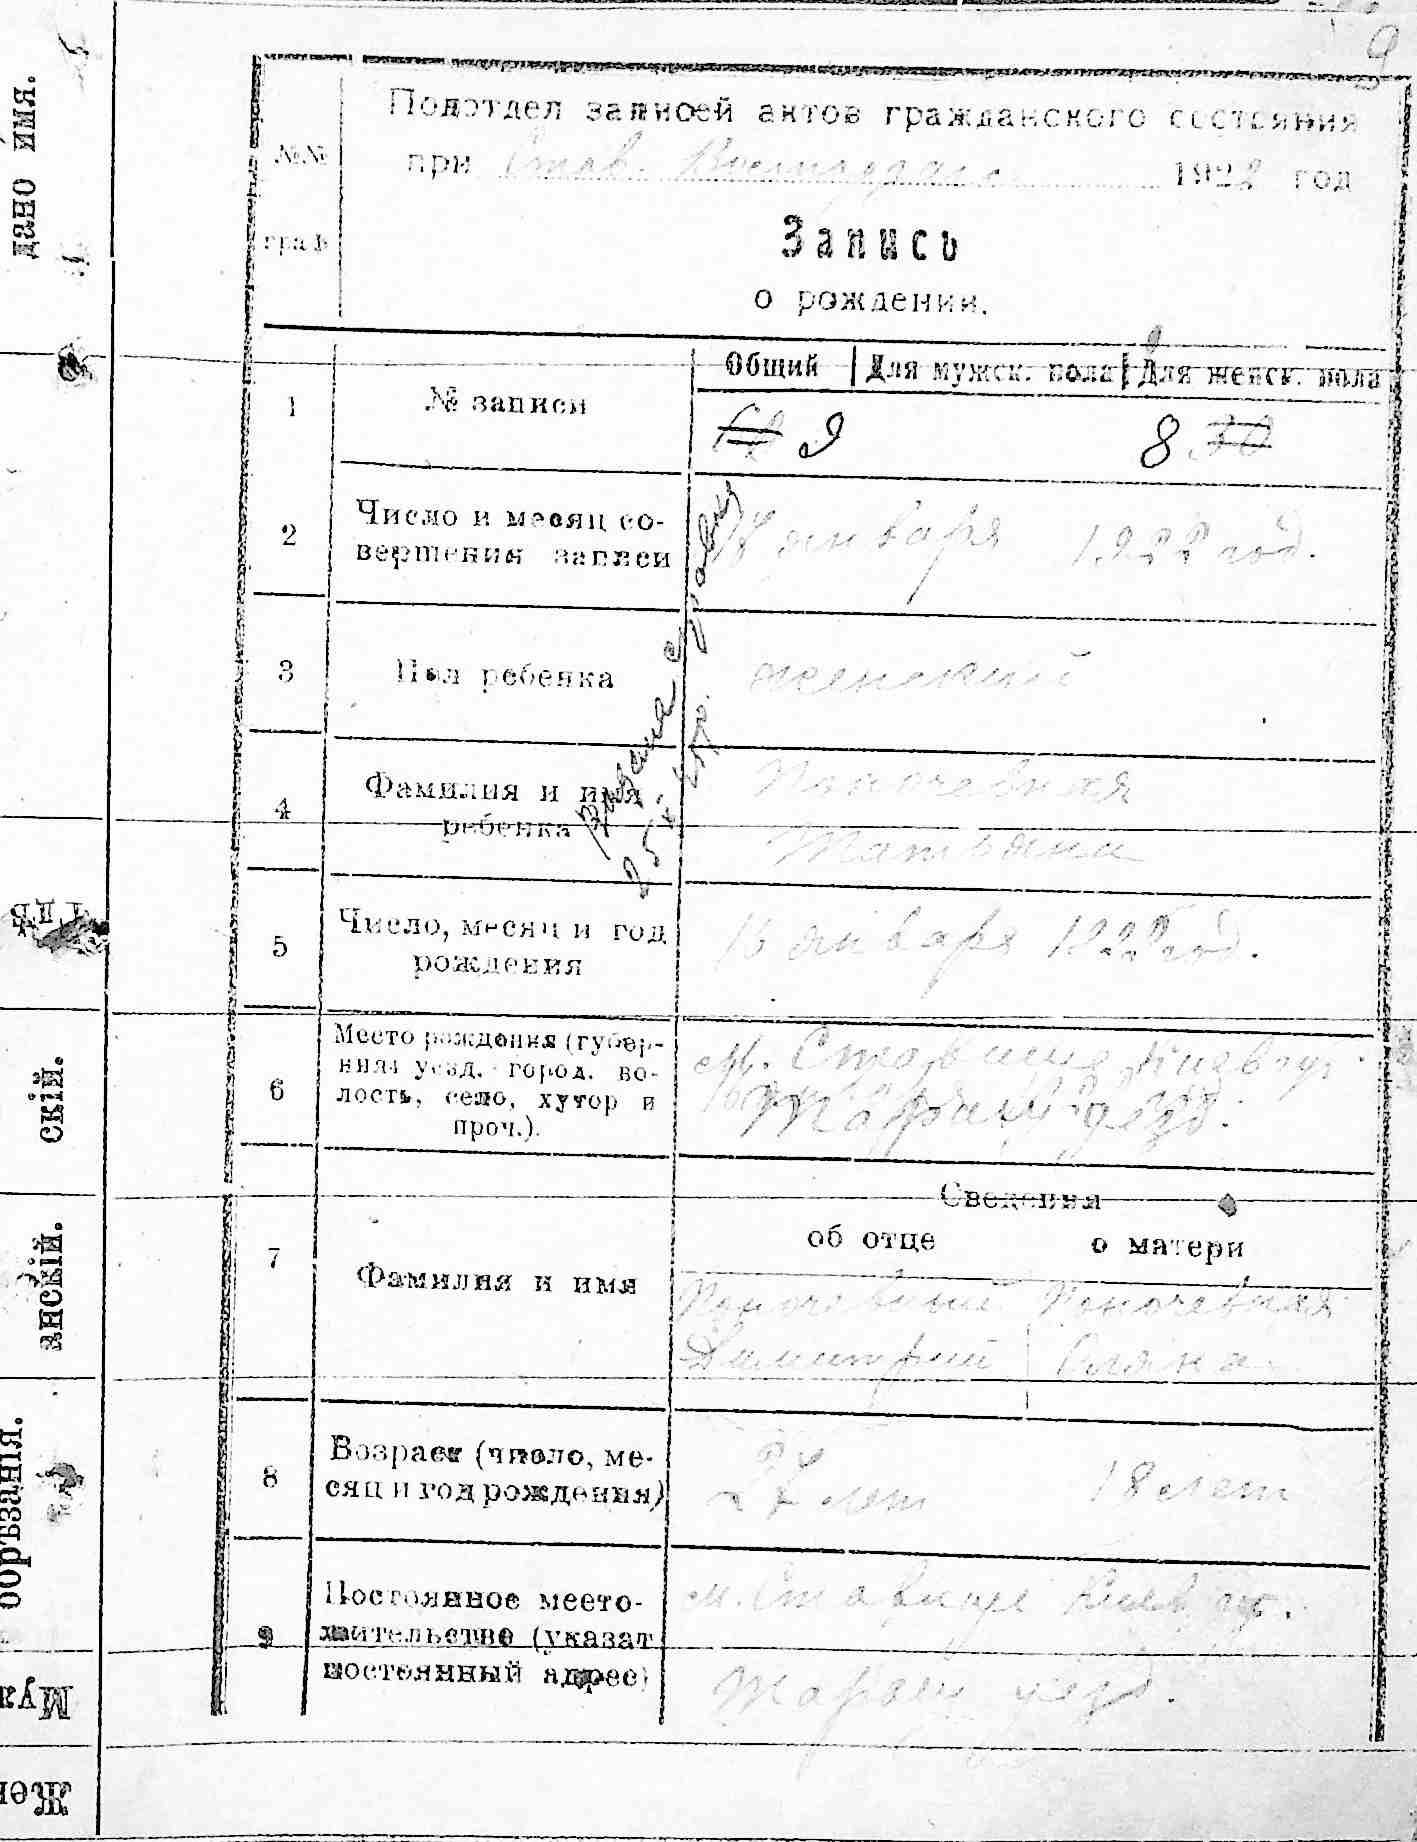 9
Подотдел записей актов гражданского состояния
№№ при Став. 1922 год
граф
Запись
о рождении.
Общий Для мужск. пола Для женск. пола
1 № записи
9 8
2 Число и месяц со-
вершения записи
18 января 1922 год.
3 Пол ребенка женский
4 Фамилия и имя
ребенка
Поночевная
Татьяна
Выдана справка
25
5 Число, месяц и год
рождения
16 января 1922 год.
6 Место рождения (губер-
ния, уезд, город, во-
лость, село, хутор и
проч.).
м. Ставище Киев губ.
Таращ уезд.
7 Фамилия и имя
Сведения
об отце о матери
Поночевный Поночевная
Димитрий
8 Возраст (число, ме-
сяц и год рождения)
27 лет 18 лет
9 Постоянное место-
жительство (указат
постоянный адрес)
м. Ставище Киев губ.
Таращ уезд.
дано имя.
скій.
анскій.
обрѣзанія.
Муж
Жен